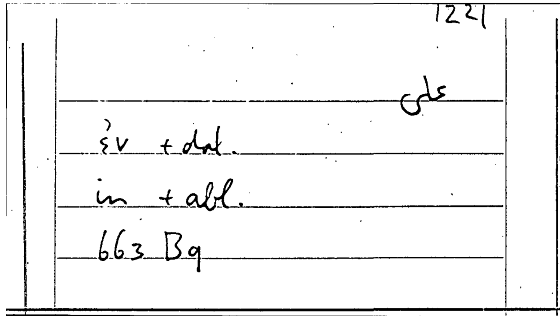 1221
على
ἐν + dat.
in + abl.
663 Bq